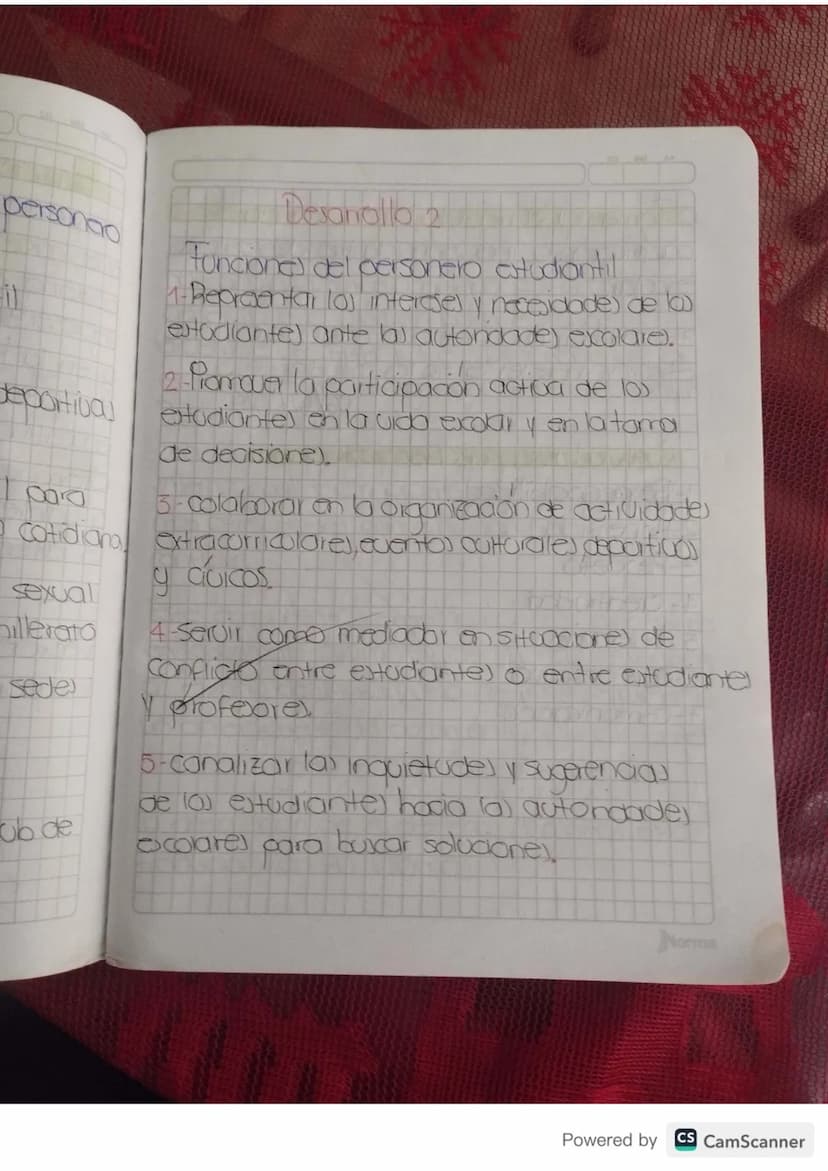 personao
il
deportivas
l para
o cotidiana,
sexual
hillerato
sedes
ub de
Desarrollo 2
Funciones del personero estudiantil
1-Representar los intereses y necesidades de los
estudiantes ante las autoridades escolares.
2-Promover la participación activa de los
estudiantes en la vida escolar y en la toma
de decisiones.
3-colaborar en la organización de actividades
extracurriculares, eventos culturales, deportivos
y cívicos.
4-servir como mediador en situaciones de
conflicto entre estudiantes o entre estudiantes
y profesores
5-canalizar las inquietudes y sugerencias
de los estudiantes hacia las autoridades
escolares para buscar soluciones.
Norma
Powered by CS CamScanner